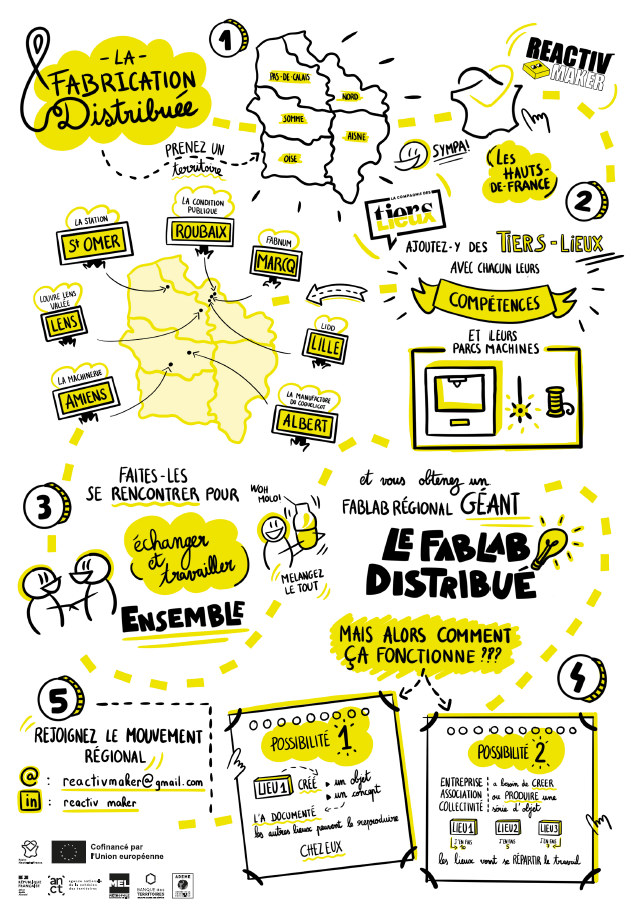 - LA -
FABRICATION
Distribuée
1
REACTIV
MAKER
PAS-DE-CALAIS
NORD
SOMME
AISNE
OISE
PRENEZ UN
territoire
SYMPA!
LES
HAUTS-
DE-FRANCE
2
LA COMPAGNIE DES
tiers
Lieux
AJOUTEZ-Y DES TIERS-LIEUX
AVEC CHACUN LEURS
COMPÉTENCES
ET LEURS
PARCS MACHINES
LA STATION
St OMER
LA CONDITION
PUBLIQUE
ROUBAIX
FABNUM
MARCQ
LOUVRE LENS
VALLÉE
LENS
LIDD
LILLE
LA MACHINERIE
AMIENS
LA MANUFACTURE
DU COQUELICOT
ALBERT
3
FAITES-LES
SE RENCONTRER POUR
échanger
et
travailler
ENSEMBLE
WOH
MOLO!
MELANGEZ
LE TOUT
et vous obtenez un
FABLAB RÉGIONAL GÉANT
LE FABLAB
DISTRIBUÉ
MAIS ALORS COMMENT
ÇA FONCTIONNE ???
4
POSSIBILITÉ 1
LIEU 1 CRÉÉ
un objet
un concept
L'A DOCUMENTÉ
les autres lieux peuvent le reproduire
CHEZ EUX
POSSIBILITÉ 2
ENTREPRISE
ASSOCIATION
COLLECTIVITÉ
a besoin de CRÉER
ou PRODUIRE une
série d'objet
LIEU 1 LIEU 2 LIEU 3
J'EN FAIS J'EN FAIS J'EN FAIS
les lieux vont se RÉPARTIR le travail
5
REJOIGNEZ LE MOUVEMENT
RÉGIONAL
@ : reactivmaker@gmail.com
in : reactiv maker
Cofinancé par
l'Union européenne
RÉPUBLIQUE
FRANÇAISE
anct
agence nationale
de la cohésion
des territoires
MEL
BANQUE des
TERRITOIRES
ADEME